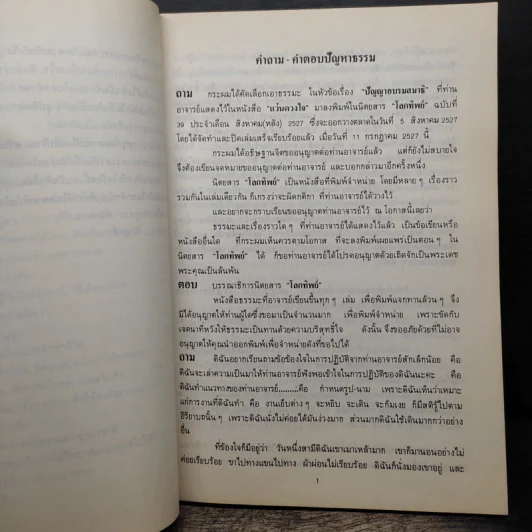 คำถาม - คำตอบปัญหาธรรม
ถาม กระผมได้คัดเลือกเอาธรรมะ ในหัวข้อเรื่อง "ปัญญาอบรมสมาธิ" ที่ท่าน
อาจารย์แสดงไว้ในหนังสือ "แว่นดวงใจ" มาลงพิมพ์ในนิตยสาร "โลกทิพย์" ฉบับที่
39 ประจำเดือน สิงหาคม(หลัง) 2527 ซึ่งจะออกวางตลาดในวันที่ 5 สิงหาคม 2527
โดยได้จัดทำและปิดเล่มเสร็จเรียบร้อยแล้ว เมื่อวันที่ 11 กรกฎาคม 2527 นี้
กระผมได้อธิษฐานจิตขออนุญาตต่อท่านอาจารย์แล้ว แต่ก็ยังไม่สบายใจ
จึงต้องเขียนจดหมายขออนุญาตต่อท่านอาจารย์ และบอกกล่าวมาอีกครั้งหนึ่ง
นิตยสาร "โลกทิพย์" เป็นหนังสือที่พิมพ์จำหน่าย โดยมีหลายๆ เรื่องราว
รวมกันในเล่มเดียวกัน ก็เกรงว่าจะผิดกติกา ที่ท่านอาจารย์ได้วางไว้
และอยากจะกราบเรียนขออนุญาตท่านอาจารย์ไว้ ณ โอกาสนี้เลยว่า
ธรรมะและเรื่องราวใดๆ ที่ท่านอาจารย์ได้แสดงไว้แล้ว เป็นข้อเขียนหรือ
หนังสืออื่นใด ที่กระผมเห็นควรตามโอกาส ที่จะลงพิมพ์เผยแพร่เป็นตอนๆ ใน
นิตยสาร "โลกทิพย์" ได้ ก็ขอท่านอาจารย์ได้โปรดอนุญาตด้วยเถิดจักเป็นพระเดช
พระคุณเป็นล้นพ้น
ตอบ บรรณาธิการนิตยสาร "โลกทิพย์"
หนังสือธรรมะที่อาจารย์เขียนขึ้นทุกๆ เล่ม เพื่อพิมพ์แจกทานล้วนๆ จึง
มิได้อนุญาตให้ท่านผู้ใดซึ่งขอมาเป็นจำนวนมาก เพื่อพิมพ์จำหน่าย เพราะขัดกับ
เจตนาที่หวังให้ธรรมะเป็นทานด้วยความบริสุทธิ์ใจ ดังนั้น จึงขออภัยด้วยที่ไม่อาจ
อนุญาตให้คุณนำออกพิมพ์เพื่อจำหน่ายดังที่ขอไปได้
ถาม ดิฉันอยากเรียนถามข้อข้องใจในการปฏิบัติจากท่านอาจารย์สักเล็กน้อย คือ
ดิฉันจะเล่าความเป็นมาให้ท่านอาจารย์ฟังพอเข้าใจในการปฏิบัติของดิฉันนะคะ คือ
ดิฉันทำแนวทางของท่านอาจารย์.........คือ กำหนดรูป-นาม เพราะดิฉันเห็นว่าเหมาะ
แก่การงานที่ดิฉันทำ คือ งานเย็บต่างๆ จะหยิบ จะเดิน จะก้มเงย ก็มีสติรู้ไปตาม
อิริยาบถนั้นๆ เพราะดิฉันนั่งไม่ค่อยได้มันง่วงมาก ส่วนมากดิฉันใช้เดินมากกว่าอย่าง
อื่น
ที่ข้องใจก็มีอยู่ว่า วันหนึ่งสามีดิฉันเขาเมาเหล้ามาก เขาก็มานอนอย่างไม่
ค่อยเรียบร้อย ขาไปทางแขนไปทาง ผ้าผ่อนไม่เรียบร้อย ดิฉันก็นั่งมองเขาอยู่ และ
1